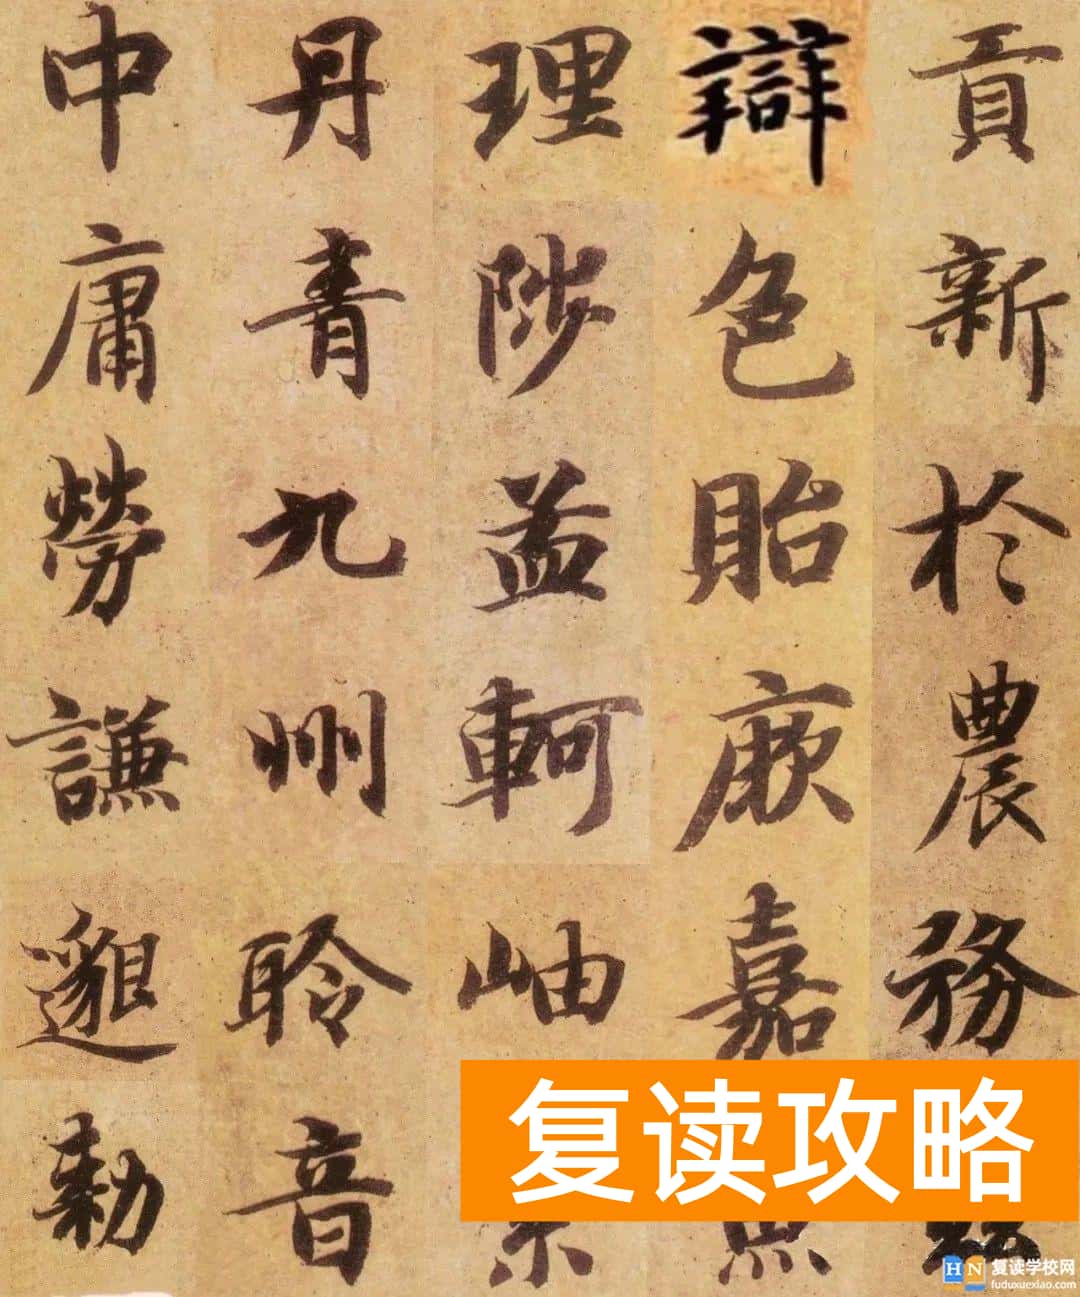 貢新於農務
辯色貽厥嘉
理陟益軻岫
丹青九州聆音
中庸勞謙邈勑
复读攻略
HN 复读学校网
fuduxuexiao.com